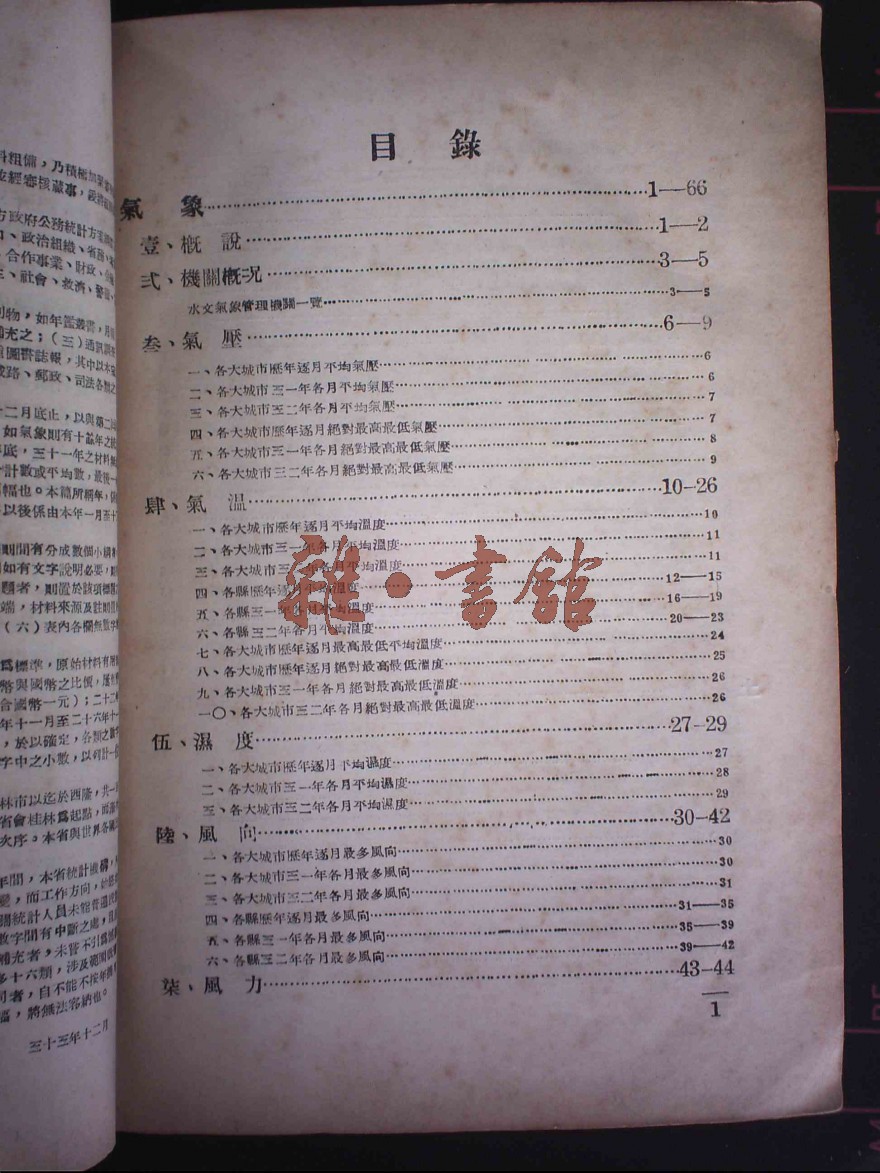 目錄
氣象 1—66
壹、概說 1—2
弍、機關概况 3—5
水文氣象管理機關一覽 3—5
叁、氣壓 6—9
一、各大城市歷年逐月平均氣壓 6
二、各大城市三一年各月平均氣壓 6
三、各大城市三二年各月平均氣壓 7
四、各大城市歷年逐月絕對最高最低氣壓 7
五、各大城市三一年各月絕對最高最低氣壓 8
六、各大城市三二年各月絕對最高最低氣壓 9
肆、氣溫 10-26
一、各大城市歷年逐月平均溫度 10
二、各大城市三一年各月平均溫度 11
三、各大城市三二年各月平均溫度 11
四、各縣歷年逐月平均溫度 12—15
五、各縣三一年各月平均溫度 16—19
六、各縣三二年各月平均溫度 20—23
七、各大城市歷年逐月最高最低平均溫度 24
八、各大城市歷年逐月絕對最高最低溫度 25
九、各大城市三一年各月絕對最高最低溫度 26
一〇、各大城市三二年各月絕對最高最低溫度 26
伍、濕度 27-29
一、各大城市歷年逐月平均濕度 27
二、各大城市三一年各月平均濕度 28
三、各大城市三二年各月平均濕度 29
陸、風向 30-42
一、各大城市歷年逐月最多風向 30
二、各大城市三一年各月最多風向 30
三、各大城市三二年各月最多風向 31
四、各縣歷年逐月最多風向 31—35
五、各縣三一年各月最多風向 35—39
六、各縣三二年各月最多風向 39—42
柒、風力 43-44
1
雜·書館
方政府公務統計方案
、政治組織、省務、
合作事業、財政、
、社會、救濟、
刊物，如年鑑叢書，月
補充之；（三）通訊調
圖書誌報，其中以本
路、郵政、司法各類之
十二月底止，以與第二
如氣象則有十餘年之
底，三十一年之材料
計數或平均數，最後一
幅也。本篇所稱年，
以後係由本年一月至十
則間有分成數個小欄
如有文字說明必要，則
題者，則置於該項標題
端，材料來源及註則
（六）表內各欄無數字
爲標準，原始材料有
幣與國幣之比價，
合國幣一元）；二十二
年十一月至二十六年十一
，於以確定，各類之數
字中之小數，以
林市以迄於西隆，共一
省會桂林爲起點，而
次序。本省與世界各
年間，本省統計機構，
，而工作方向，
關統計人員未能普遍
數字間有中斷之處，
補充者，未嘗不引爲
多十六類，涉及範圍
司者，自不能不按年
，將無法容納也。
三十三年十二月